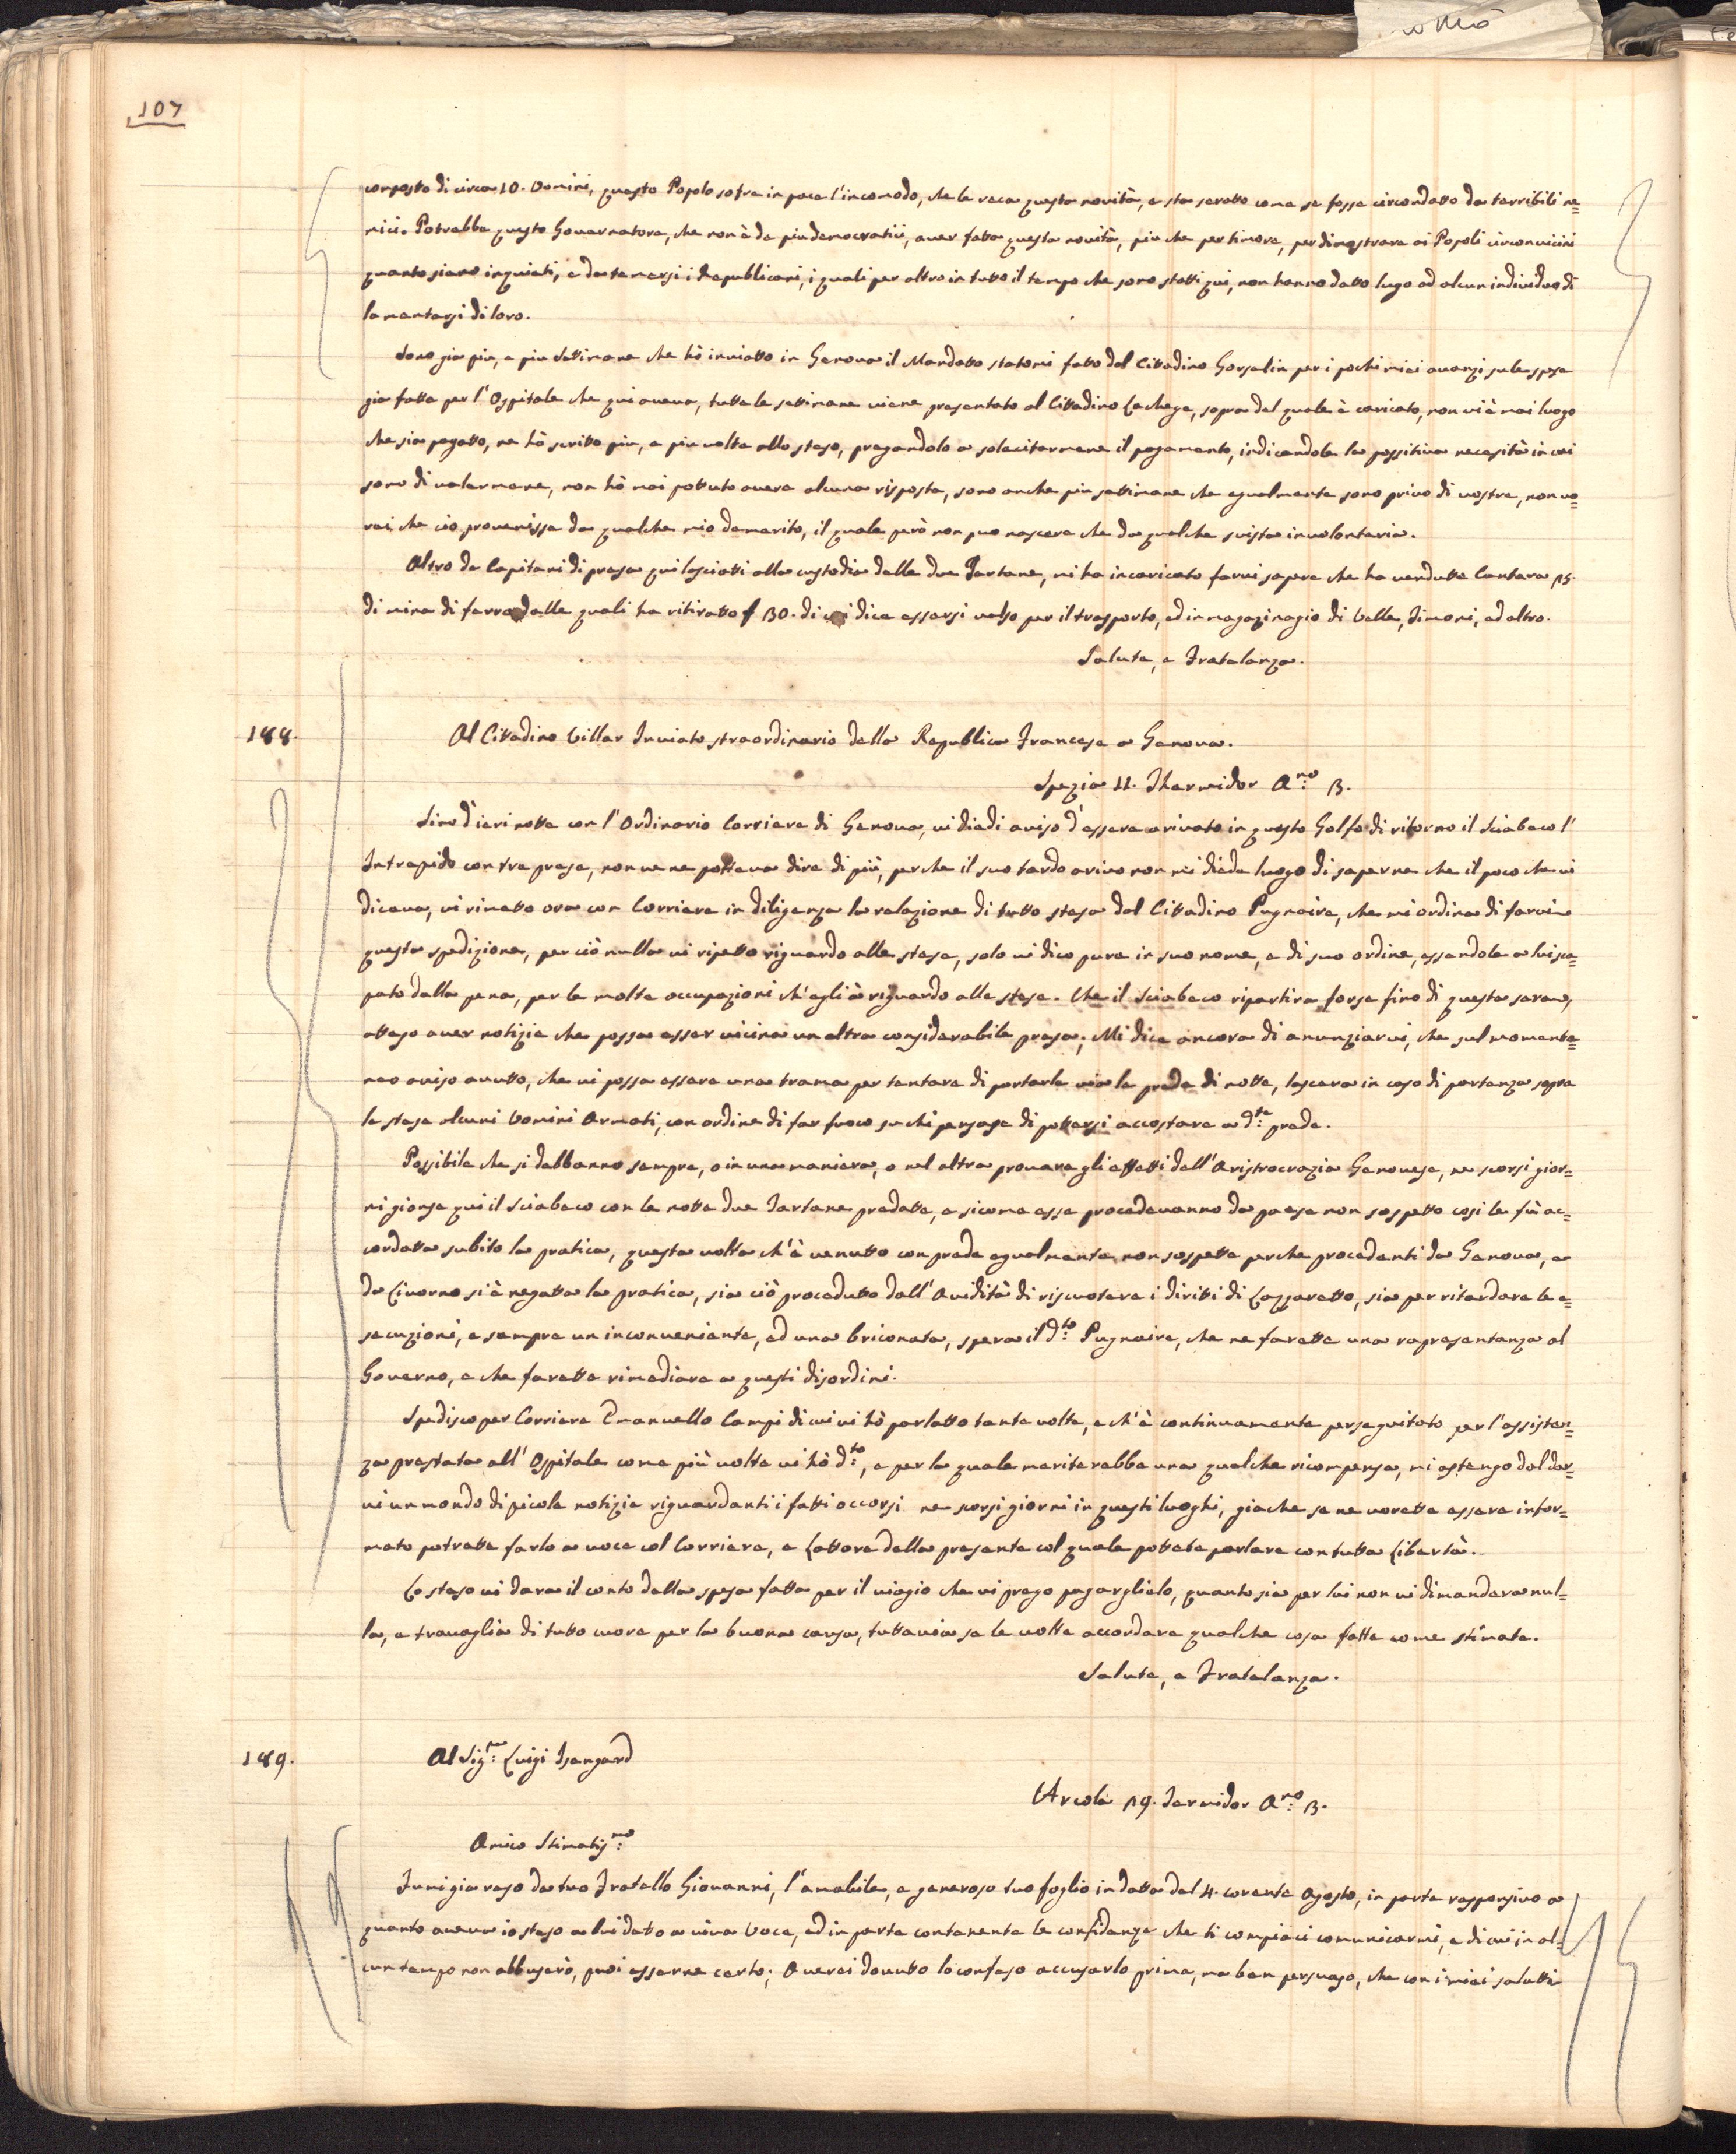 107
composto di circa 10. Uomini, questo Popolo sofre in pace l'incomodo, che le reca questa novità, e sta serotto come se fosse circondatto da terribili ne=
mici. Potrebbe questo Governatore, che non è de piu democratici, aver fatta questa novità, piu che per timore, per dimostrare ai Popoli circonvicini
quanto siano inquieti, e da temersi i Republicani, i quali per altro in tutto il tempo che sono statti qui, non hanno datto lugo ad alcun individuo di
lamentarsi di loro.
Sono gia piu, e piu settimane che hò inviatto in Genova il Mandatto statomi fatto dal Cittadino Gorsalin per i pochi miei avanzi su le spese
gia fatte per l'Ospitale che qui aveva, tutte le settimane viene presentato al Cittadino Lachege, sopra del quale è caricato, non vi è mai luogo
che sia pagatto, ne hò scritto piu, e piu volte allo steso, pregandolo a solecitarmene il pagamento, indicandole la possitiva necesità in cui
sono di valermene, non hò mai pottuto avere alcuna risposta, sono anche piu settimane che egualmente sono privo di vostre, non vo=
rei che cio provenisse da qualche mio demerito, il quale però non puo nascere che da qualche svista involontaria.
Altro de Capitani di presa qui lasciatti alla custodia delle due Tartane, mi ha incaricato farvi sapere che ha vendutte Cantara 15.
di mina di ferro dalle quali ha ritiratto f 30. di cui dice essersi valso per il trasporto, ed in magazinagio di Velle, Timoni, ed altro.
Salute, e Fratelanza.
188.
Al Cittadino Villar Inviato straordinario della Republica Francese a Genova.
Spezia 11. Thermidor Anno 3.
Sino d'ieri notte con l'Ordinario Corriere di Genova, vi diedi aviso d'essere arivato in questo Golfo di ritorno il Sciabeco l'
Intrepido con tre prese, non ve ne potteva dire di più, perche il suo tardo arivo non mi diede luogo di saperne che il poco che vi
diceva, vi rimetto ora con Corriere in diligenza la relazione di tutto stesa dal Cittadino Pugnaire, che mi ordina di farvi
questa spedizione, per ciò nulla vi ripetto riguardo alle stese, solo vi dico pure in suo nome, e di suo ordine, essendole a lui sca=
pato dalla pena, per le molte occupazioni ch'egli à riguardo alle stese. Che il Sciabeco ripartira forse fino di questa sera,
atteso aver notizie che possa esser vicina un altra considerabile presa; Mi dice ancora di anunziarvi, che sul momenta=
neo aviso avutto, che vi possa essere una trama per tentare di portarle via le prede di notte, lascera in caso di partenza sopra
le stese alcuni Uomini Armati, con ordine di far fuoco su chi pensase di pottersi accostare a dte prede.
Possibile che si debbanno sempre, o in una maniera, o nel altra provare gli effetti dell'Aristrocrazia Genovese, ne scorsi gior=
ni gionse qui il Sciabeco con le notte due Tartane predatte, e sicome esse procedevanno da paese non sospetto cosi le fù ac=
cordatta subito la pratica, questa volta ch'è venutto con prede egualmente non sospette perche procedenti da Genova, e
da Livorno si è negatta la pratica, sia ciò procedutto dall'Avidità di riscuotere i diriti di Lazzaretto, sia per ritardare le e=
secuzioni, e sempre un inconveniente, ed una briconata, spera il dto Pugnaire, che ne farette una rapresentanza al
Governo, e che farette rimediare a questi disordini.
Spedisco per Corriere Emanuello Campi di cui vi hò parlatto tante volte, e ch'è continuamente perseguitato per l'assisten=
za prestata all'Ospitale come più volte vi hò dto, e per la quale meriterebbe una qualche ricompensa, mi astengo dal dar=
vi un mondo di picole notizie riguardanti i fatti occorsi ne scorsi giorni in questi luoghi, giache se ne vorette essere infor=
mato potrette farlo a voce col Corriere, e Lattore della presente col quale pottete parlare con tutta Libertà.
Lo steso vi dara il conto della spesa fatta per il viagio che vi prego pagarglielo, quanto sia per lui non vi dimandera nul=
la, e travaglia di tutto cuore per la buona causa, tuttavia se le volte accordare qualche cosa fatte come stimate.
Salute, e Fratelanza.
189.
Al Sigre Luigi Isengard
Arcola 19. Termidor Anno 3.
Amico Stimatismo
Fumi gia reso da tuo Fratello Giovanni, l'amabile, e generoso tuo foglio in datta del 4. corente Agosto, in parte responsivo a
quanto aveva io steso a lui datto a viva Voce, ed in parte contenente le confidenze che ti compiaci comunicarmi, e di cui in al=
cun tempo non abbuserò, puoi esserne certo; Averei dovutto lo confeso accusarlo prima, ma ben persuaso, che con i miei salutti